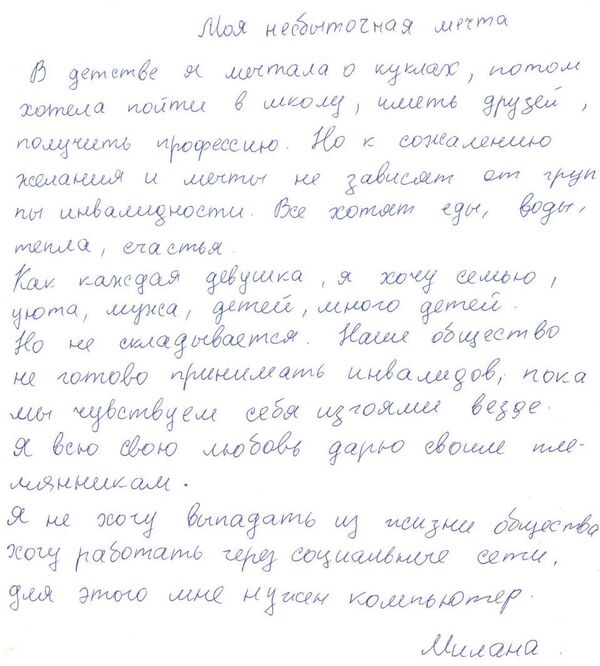 Моя несбыточная мечта
В детстве я мечтала о куклах, потом
хотела пойти в школу, иметь друзей,
получить профессию. Но к сожалению
желания и мечты не зависят от груп
пы инвалидности. Все хотят еды, воды,
тепла, счастья.
Как каждая девушка, я хочу семью,
уюта, мужа, детей, много детей.
Но не складывается. Наше общество
не готово принимать инвалидов, пока
мы чувствуем себя изгоями везде.
Я всю свою любовь дарю своим пле-
мянникам.
Я не хочу выпадать из жизни общества
хочу работать через социальные сети,
для этого мне нужен компьютер.
Милана.